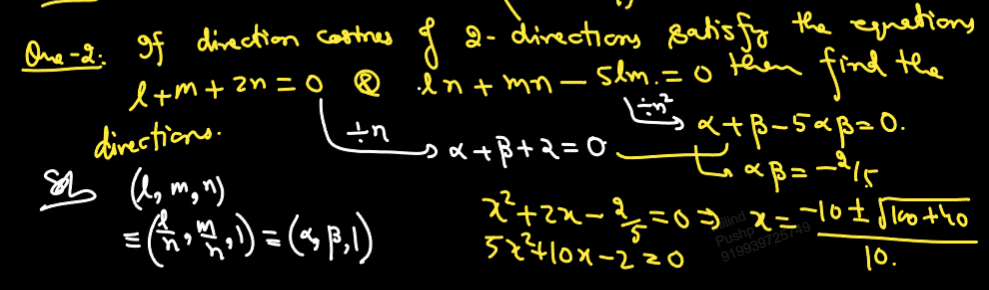 Que-2: If direction cosines of 2-directions satisfy the equations
l+m+2n=0 & ln+mn-5lm.=0 then find the
directions.
÷n → α+β+2=0
÷n² → α+β-5αβ=0.
→ αβ=-2/5
Sol (l, m, n)
≡(l/n, m/n, 1)≡(α, β, 1)
x²+2x-2/5=0 ⇒ x = (-10±√(100+40))/10.
5x²+10x-2=0
Pushp
919939725749